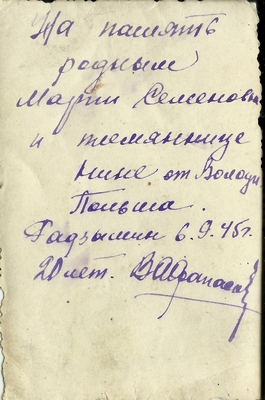 На память
родным
Марии Семеновне
и племяннице
Нине от Володи
Польша.
Радзымин 6.9.45г.
20 лет. ВАфанасьев